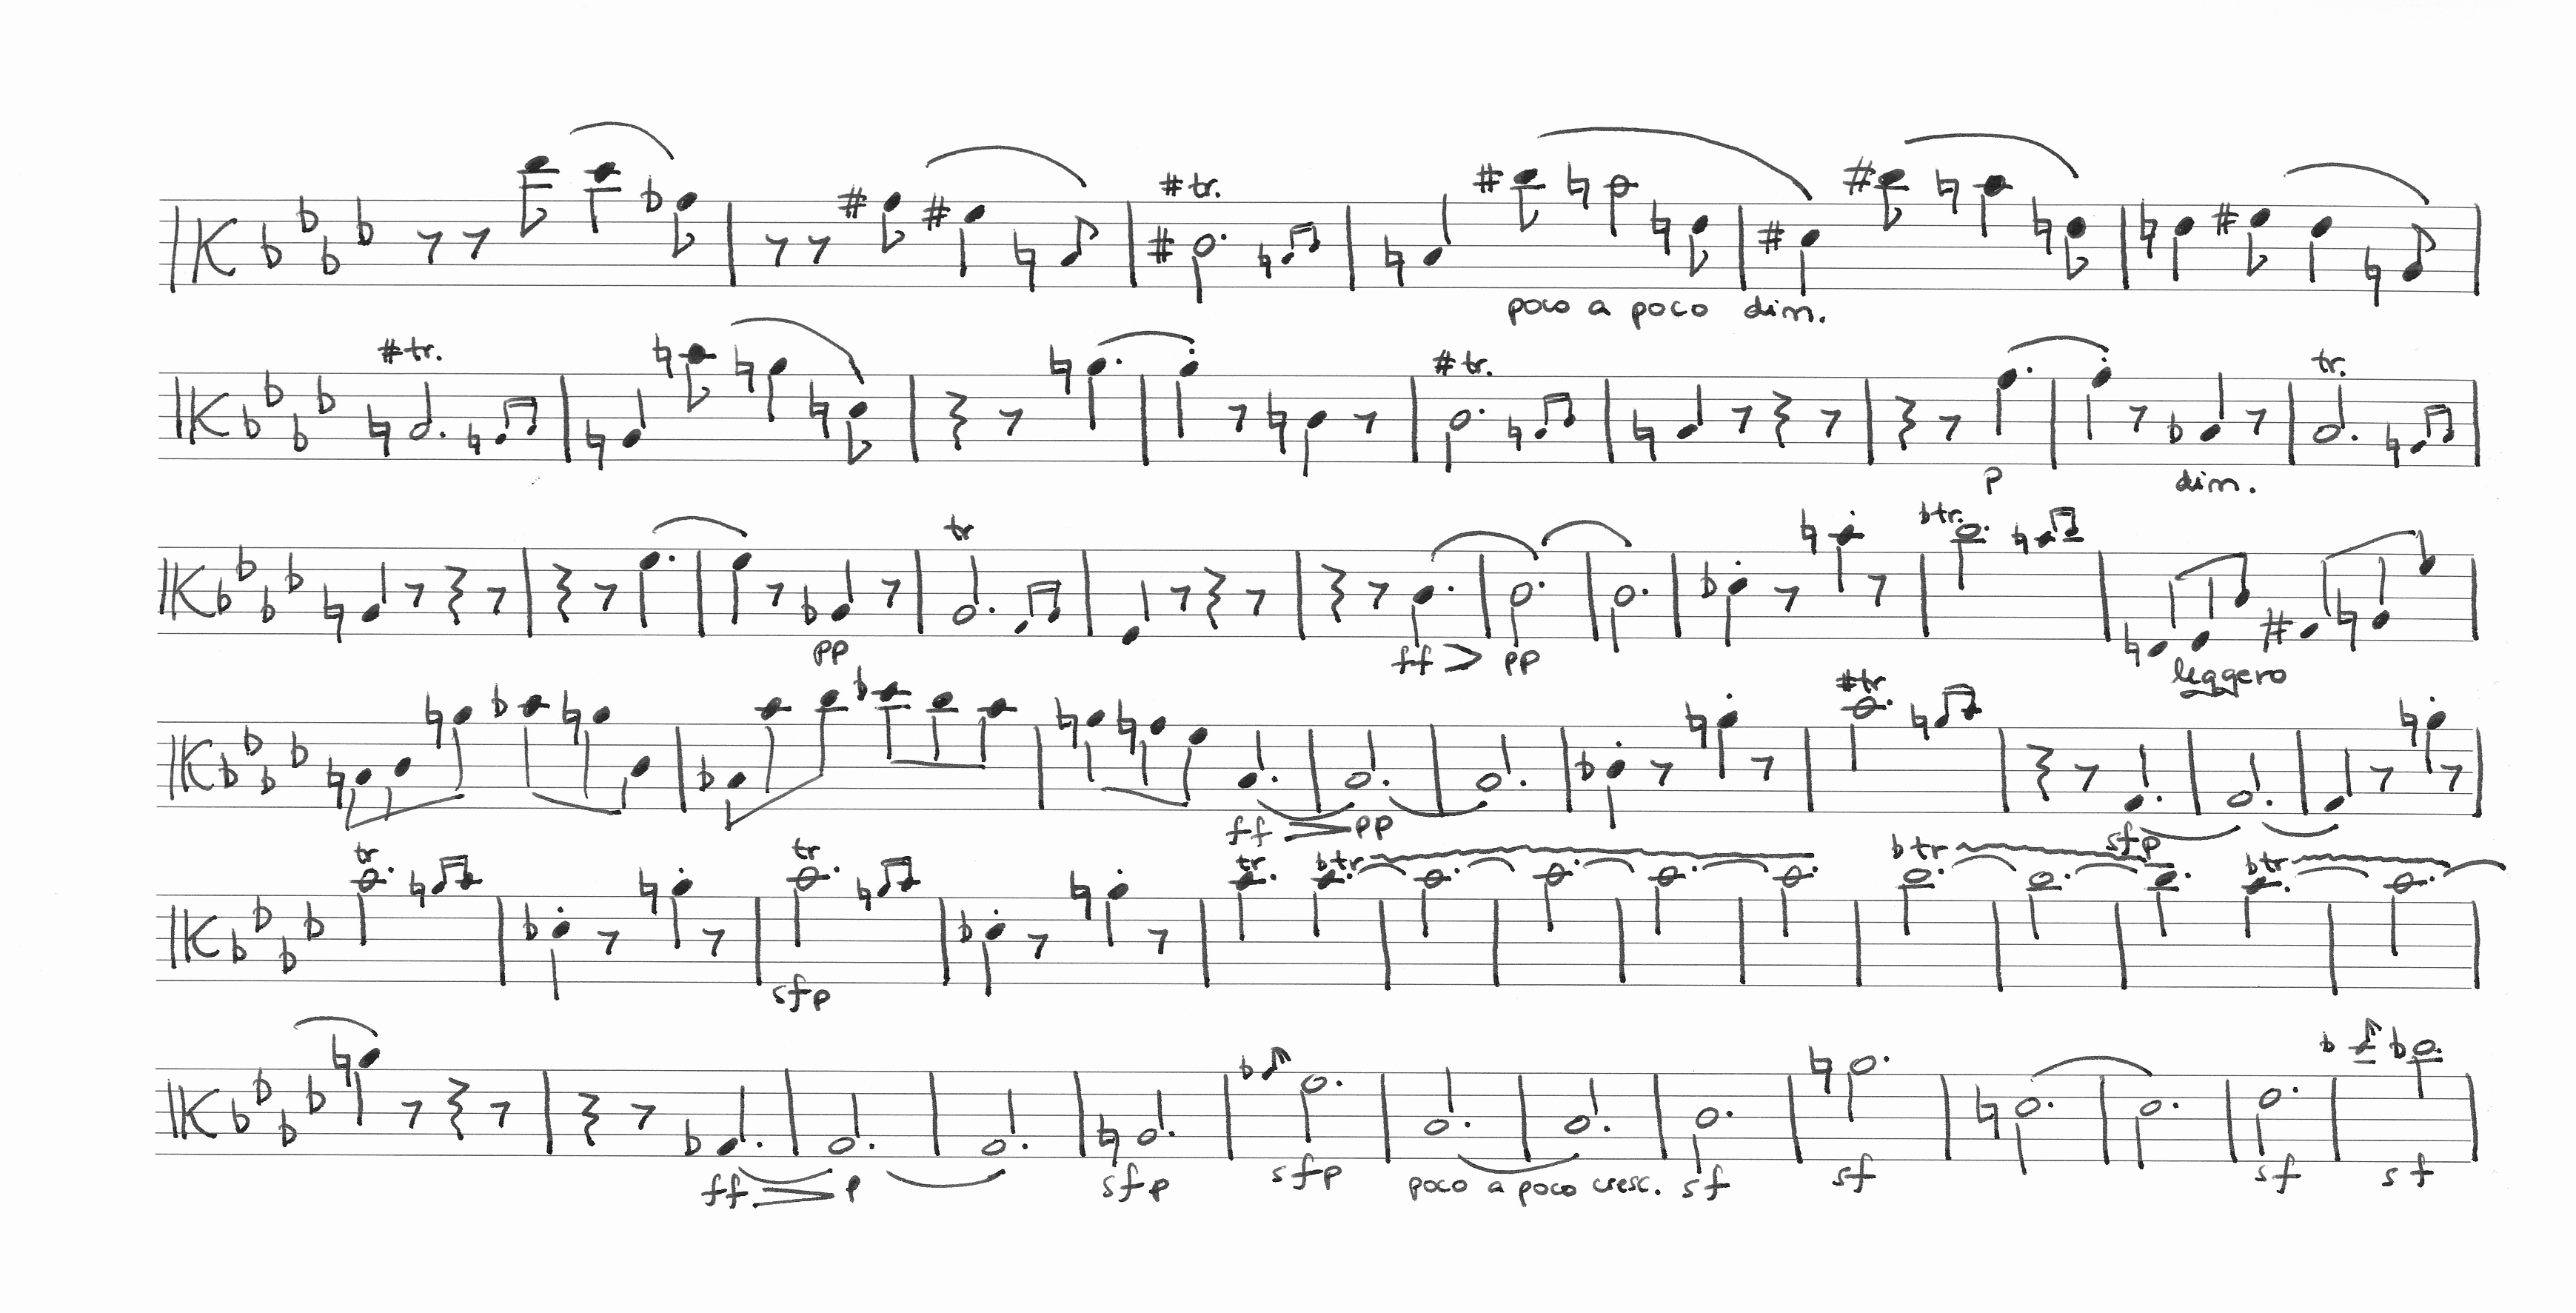 tr.
poco a poco dim.
tr. tr. tr.
p dim.
tr btr.
pp ff pp leggero
tr
ff pp sfp
tr tr tr. btr btr btr
sfp
ff p sfp sfp poco a poco cresc. sf sf sf sf